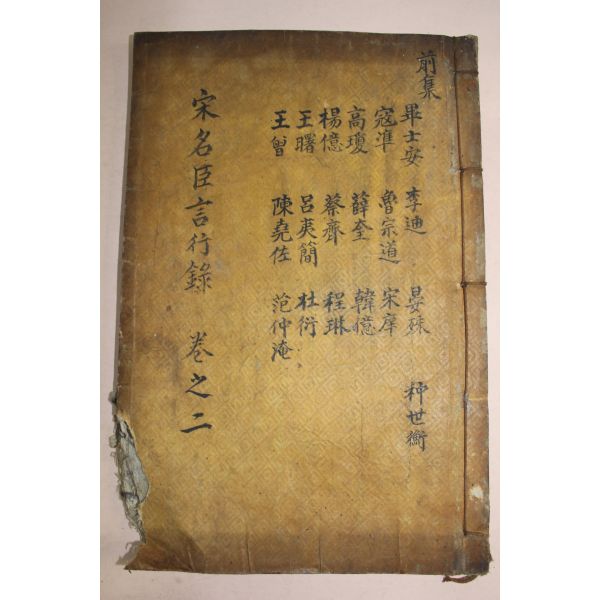 前集
畢士安 李迪 晏殊 种世衡
寇準 魯宗道 宋庠
高瓊 薛奎 韓億
楊億 蔡齊 程琳
王曙 呂夷簡 杜衍
王曾 陳堯佐 范仲淹
宋名臣言行錄 卷之二